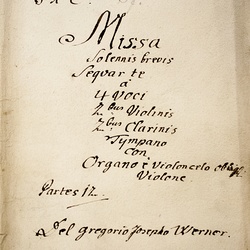 Missa
Solennis brevis
Sequar te
a
4 Voci
2bus Violinis
2bus Clarinis
Tympano
con
Organo è Violoncelo
Violone
Partes 12.
Del Gregorio Josepho Werner.